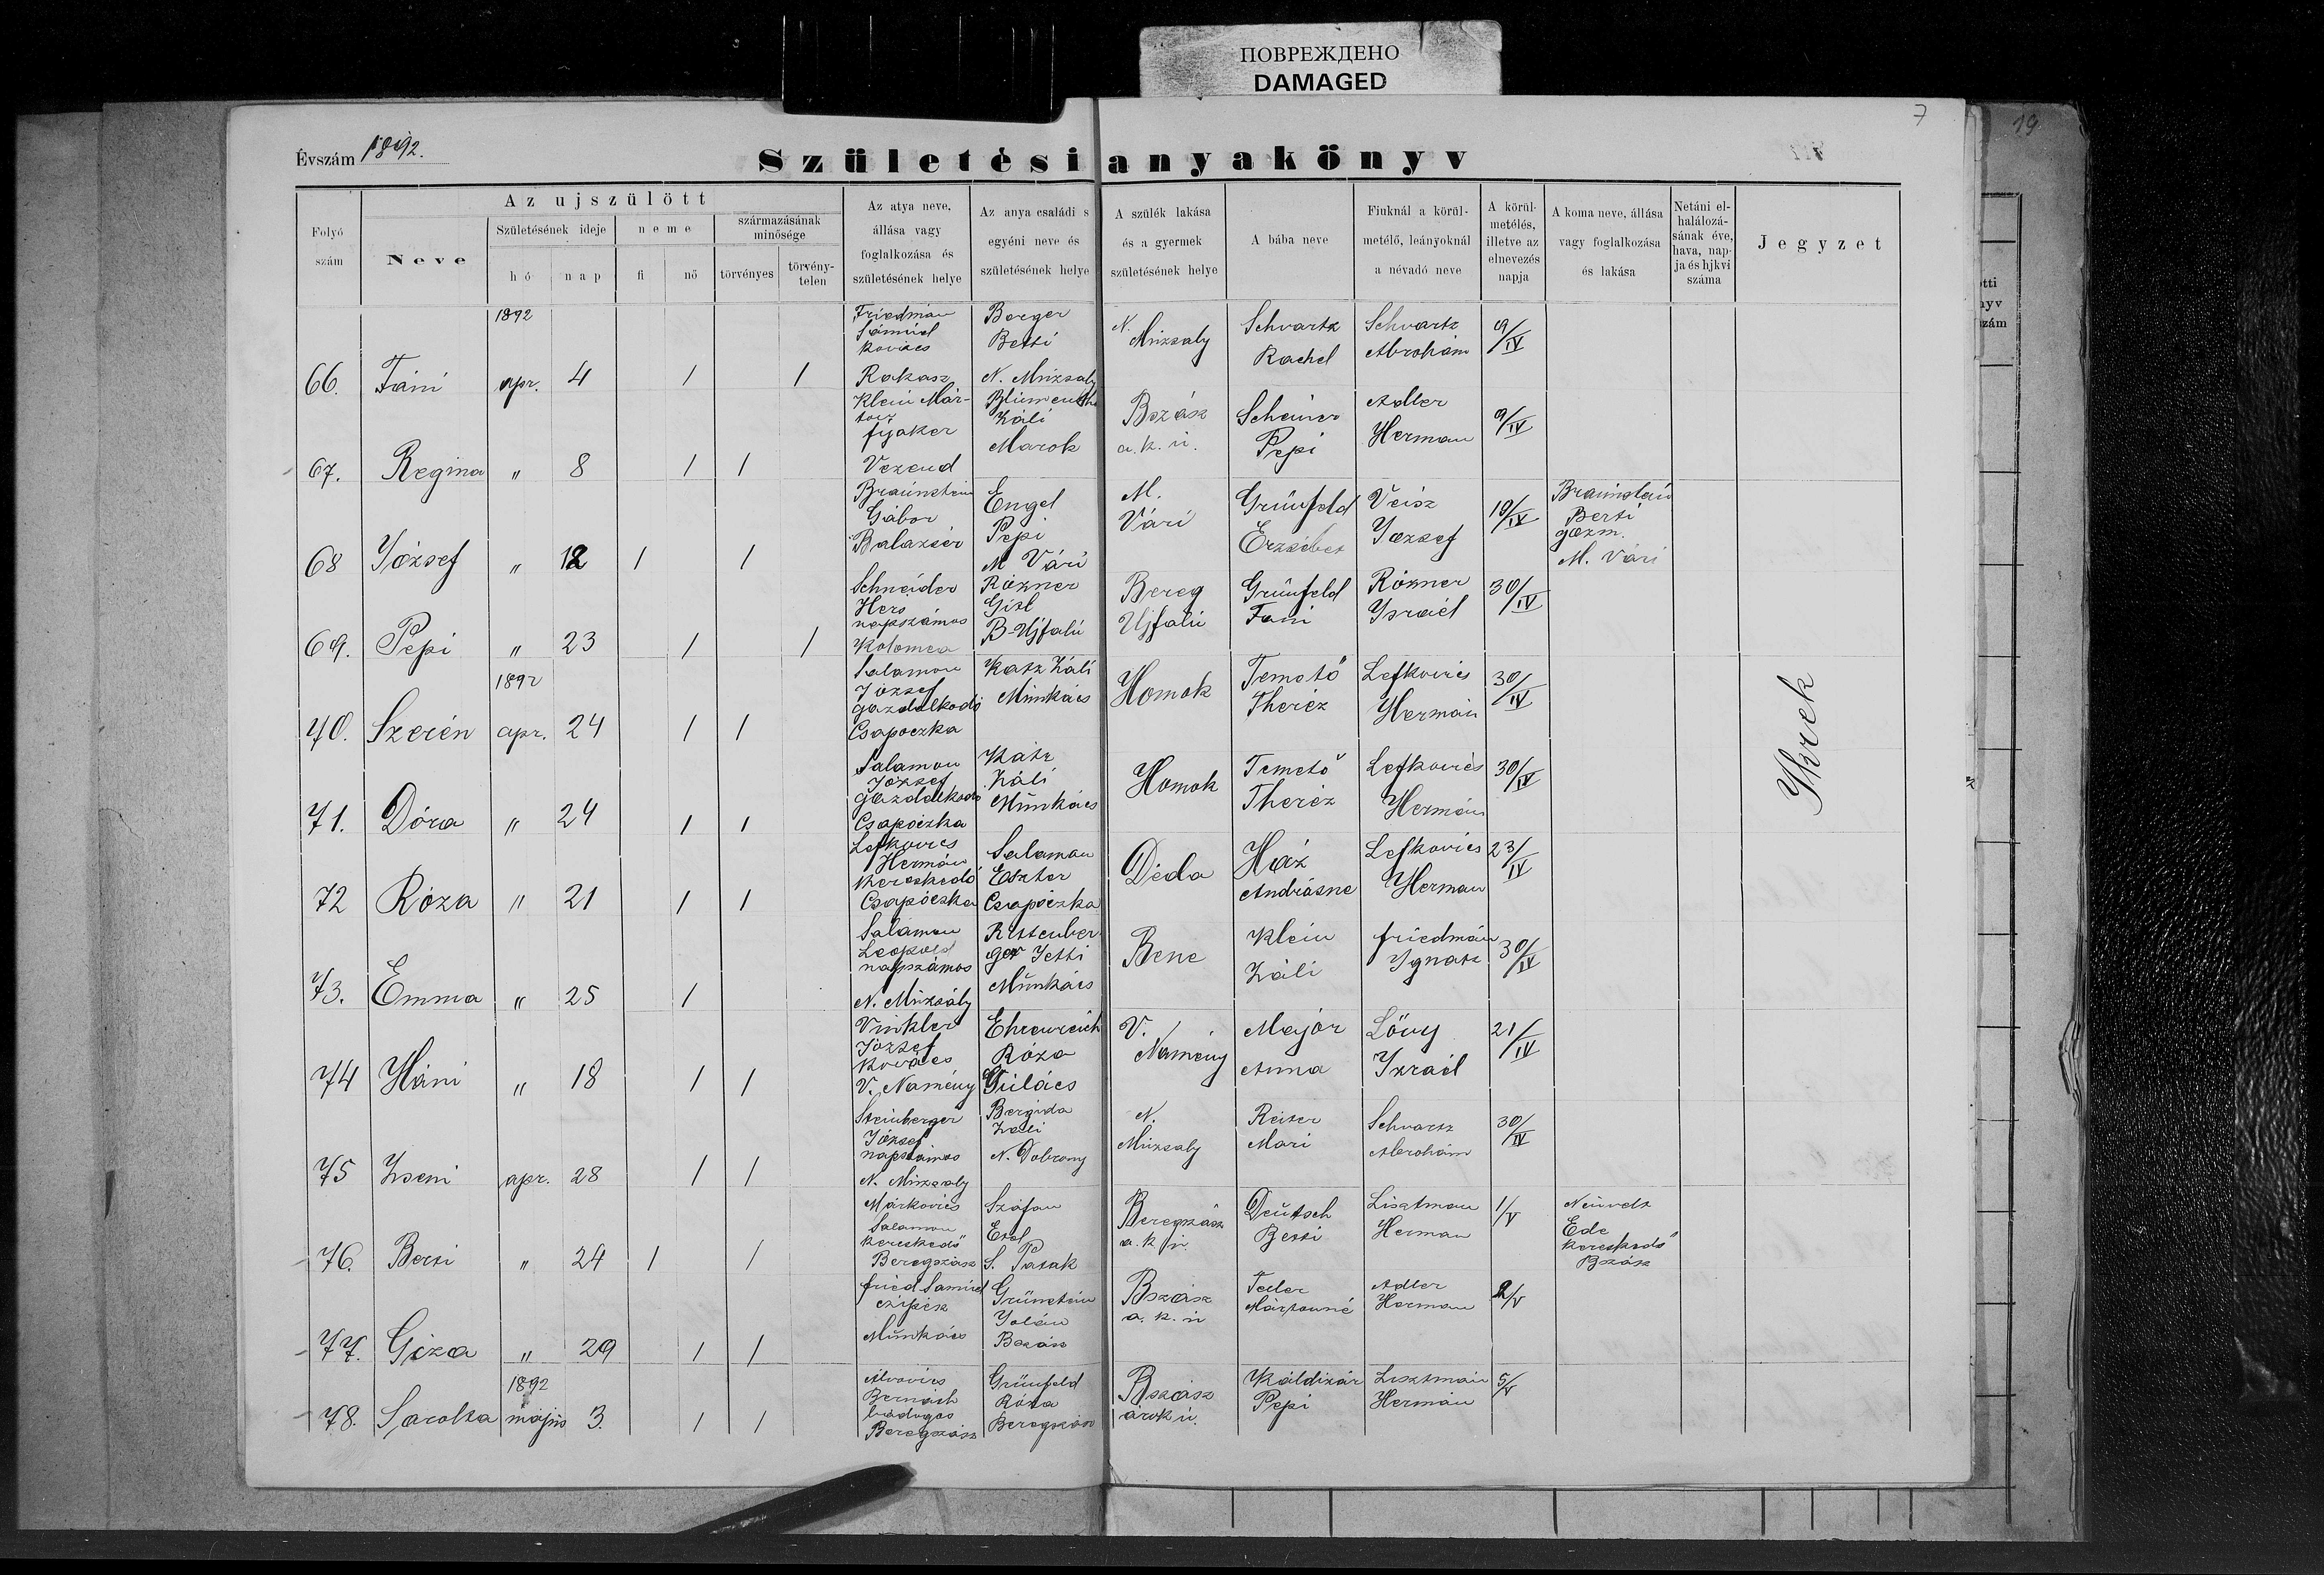 ПОВРЕЖДЕНО
DAMAGED
7
19
Évszám 1892.
Születési anyakönyv
Folyó szám
Az ujszülött
Neve
Születésének ideje
hó
nap
neme
fi
nő
származásának minősége
törvényes
törvénytelen
Az atya neve, állása vagy foglalkozása és születésének helye
Az anya családi s egyéni neve és születésének helye
A szülék lakása és a gyermek születésének helye
A bába neve
Fiuknál a körülmetélő, leányoknál a névadó neve
A körülmetélés, illetve az elnevezés napja
A koma neve, állása vagy foglalkozása és lakása
Netáni elhalálozásának éve, hava, napja és hjkvi száma
Jegyzet
1892
66. Fáni apr. 4 / /
Friedman Sámuel kovács Rakasz
Berger Betti N. Muzsaly
N. Muzsaly
Schvartz Rachel
Schvartz Abrohám
9/IV
67. Regina " 8 / /
Klein Mártor fijaker Vezend
Záli Marok
Bszász a.k.u.
Pepi
Adler Herman
9/IV
68 József " 12 / /
Braunstein Gábor Balazsér
Engel Pepi M Vári
M. Vári
Grünfeld Erzsébet
Veisz Jozsef
19/IV
Braunstein Berti gazm. M. Vári
69. Pepi " 23 / /
Schneider Hers napszámos Kolomea
Rozner Gisl B-Ujfalu
Bereg Ujfalu
Grünfeld Fani
Rózner Israel
30/IV
1892
70. Szerén apr. 24 / /
Salamon József gazdálkodó Csapoczka
Katz Záli Munkács
Homok
Temető Theréz
Lefkovics Hermán
30/IV
71. Dóra " 24 / /
Salamon József gazdálkodó Csapóczka
Katz Záli Munkács
Homok
Temető Theréz
Lefkovics Hermán
30/IV
Ikrek
72 Róza " 21 / /
Lefkovics Hermán kereskedő Csapóczka
Salamon Eszter Csapóczka
Déda
Ház Andrásne
Lefkovics Herman
23/IV
73. Emma " 25 /
Salamon Leopold napszámos N. Muzsály
Rittenberger Jetti Munkács
Bene
Klein Záli
friedmán Ignatz
30/IV
74 Háni " 18 / /
Vinkler József kovács V. Namény
Ehrenreich Róza Gulács
V. Namény
Major Anna
Lövy Izrael
21/IV
75 Zseni apr. 28 / /
Steinberger József napszámos N. Muzsaly
Bergida Zali N. Dobrony
N. Muzsaly
Reiter Mari
Schvartz Abrohám
30/IV
76. Berti " 24 / /
Márkovics Salamon kereskedő Beregszász
Eszt S. Patak
Beregszász a.k.u.
Deutsch Betti
Lisztman Herman
1/V
Ede kereskedő Bszász
77. Giza " 29 / /
fried Samuel czipész Munkács
Grünstein Jolán Bszász
Bszász a.k.u
Mártonné
Adler Herman
2/V
1892
78. Sarolta május 3. / /
Bernáth bádogos Beregszász
Grünfeld Róza Beregszász
Bszász árok u.
Káldizár Pepi
Lisztman Hermán
5/V